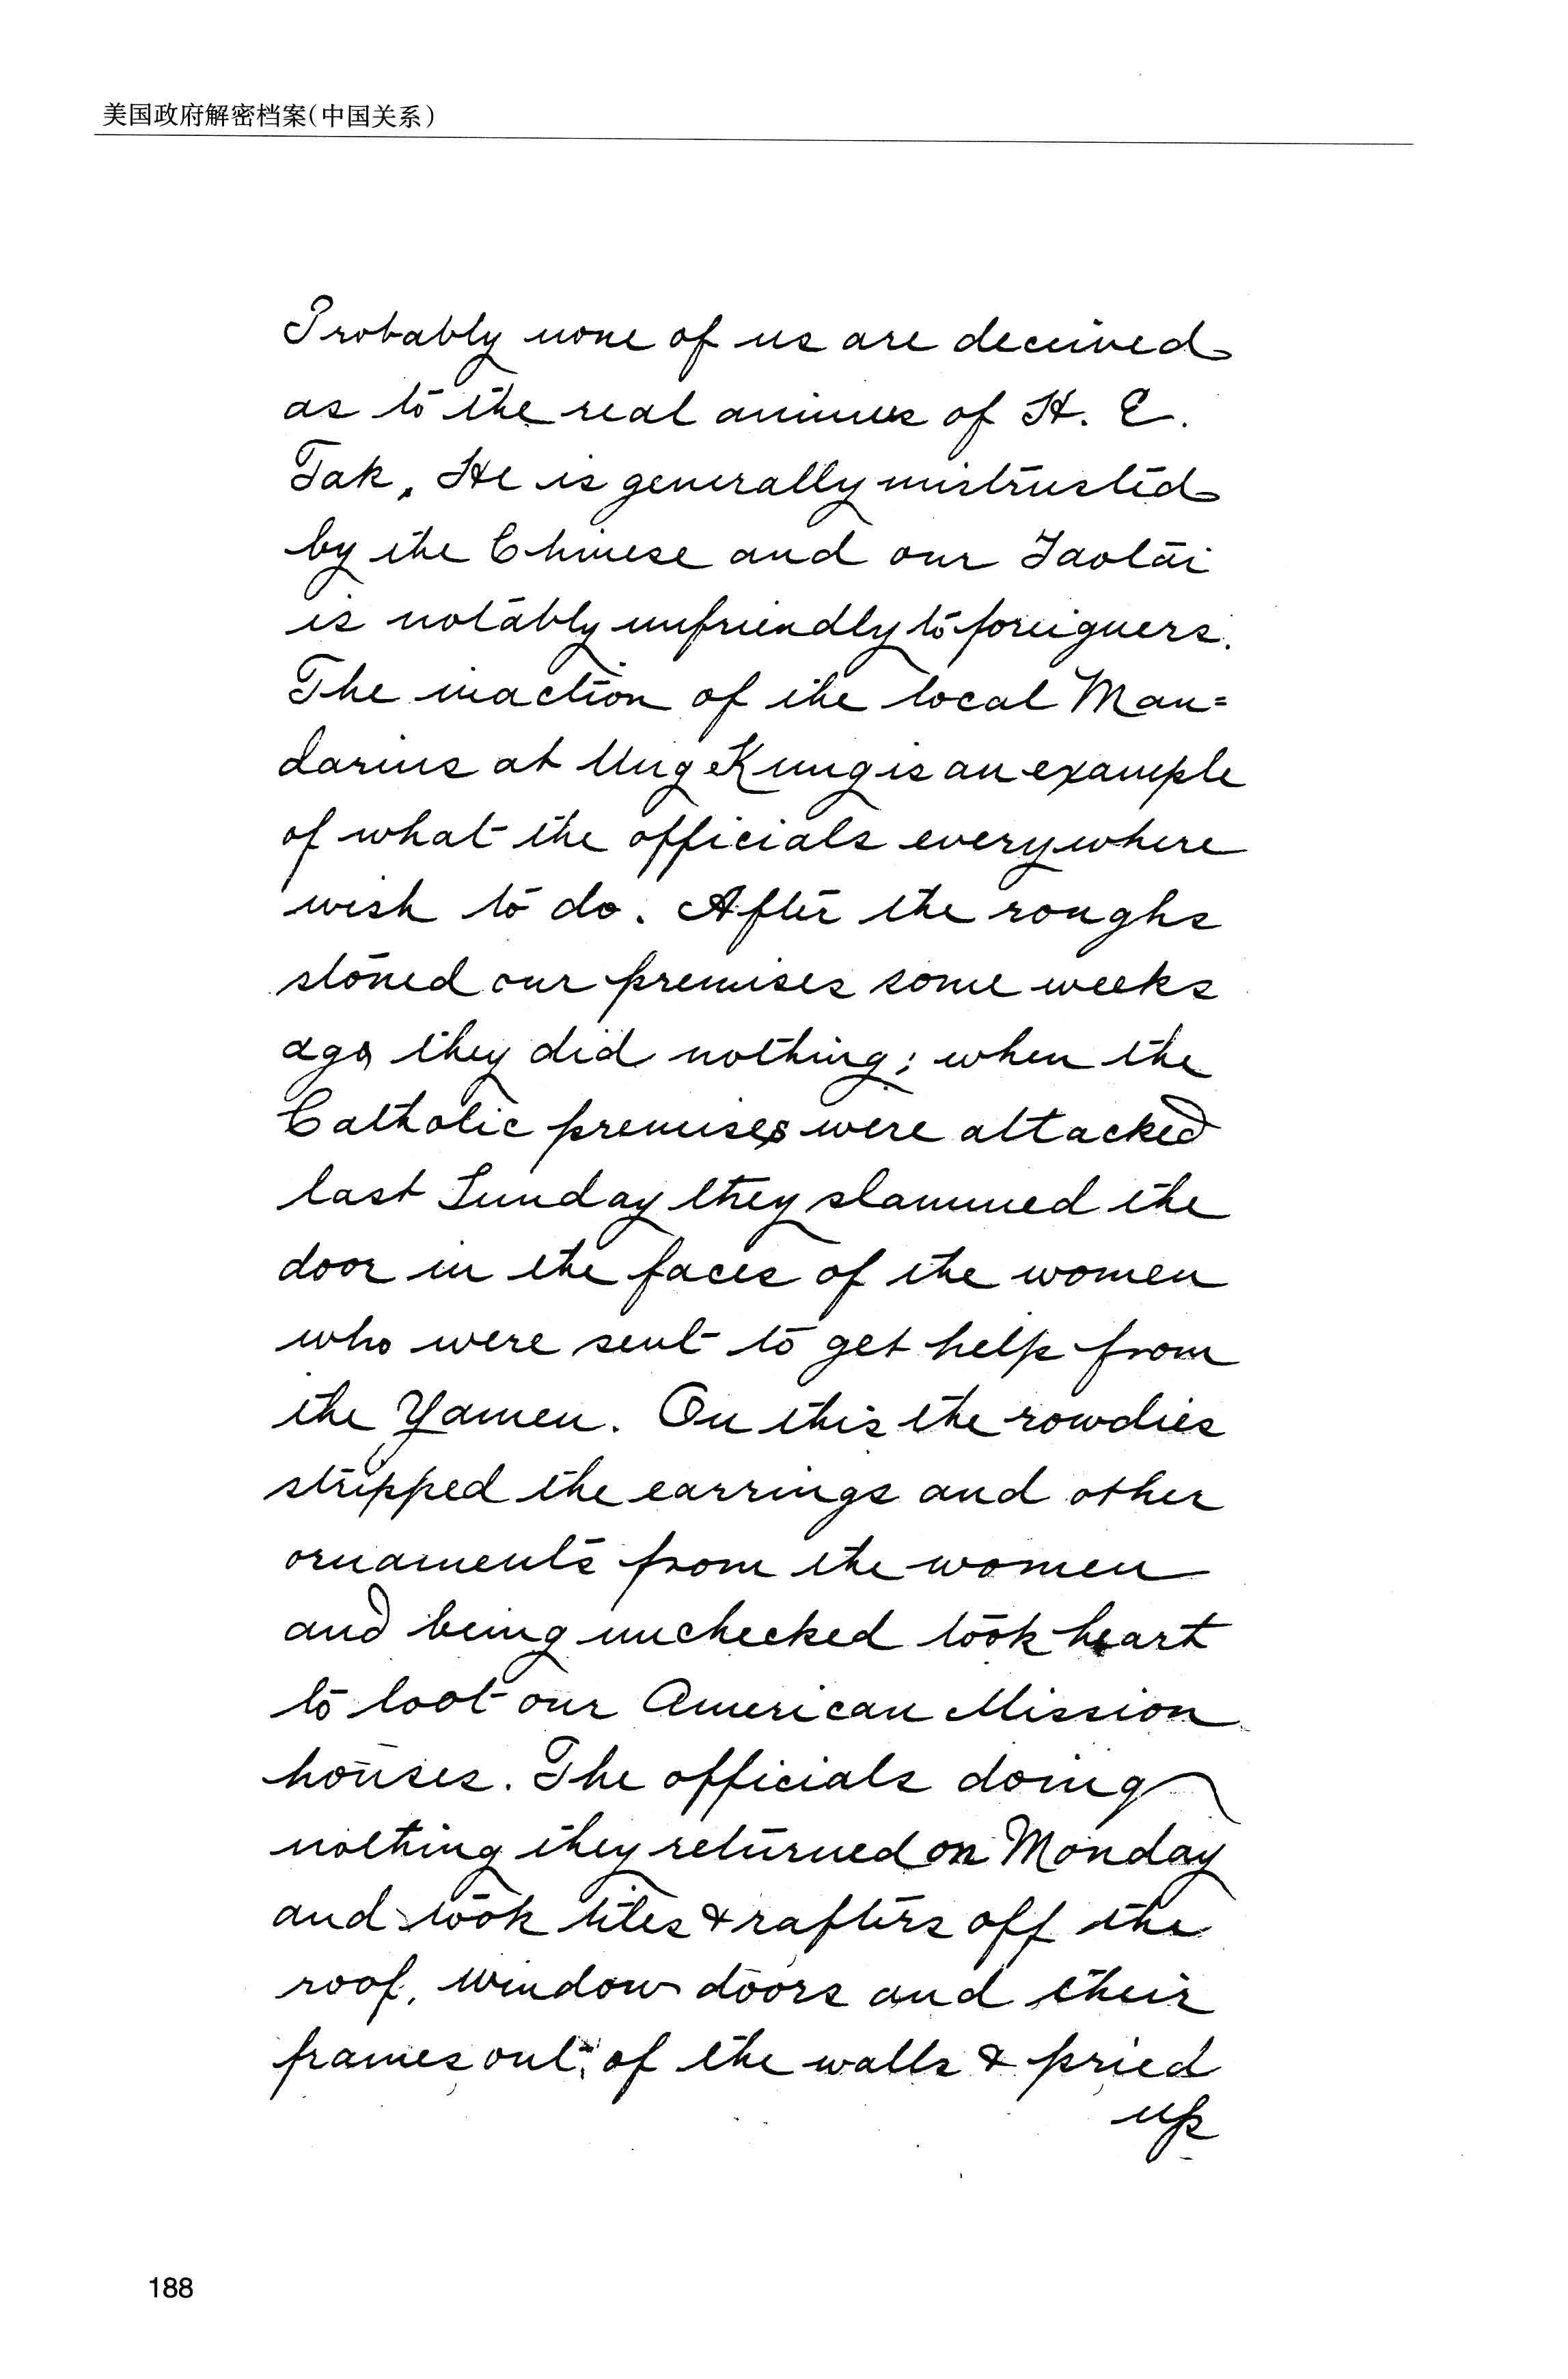 美国政府解密档案(中国关系)
Probably none of us are deceived
as to the real animus of H. E.
Tak. He is generally mistrusted
by the Chinese and our Taotai
is notably unfriendly to foreigners.
The inaction of the local Man=
darins at Ung Kung is an example
of what the officials everywhere
wish to do. After the roughs
stoned our premises some weeks
ago they did nothing; when the
Catholic premises were attacked
last Sunday they slammed the
door in the faces of the women
who were sent to get help from
the Yamen. On this the rowdies
stripped the earrings and other
ornaments from the women
and being unchecked took heart
to loot our American Mission
houses. The officials doing
nothing they returned on Monday
and took tiles & rafters off the
roof, window doors and their
frames out of the walls & pried
up
188